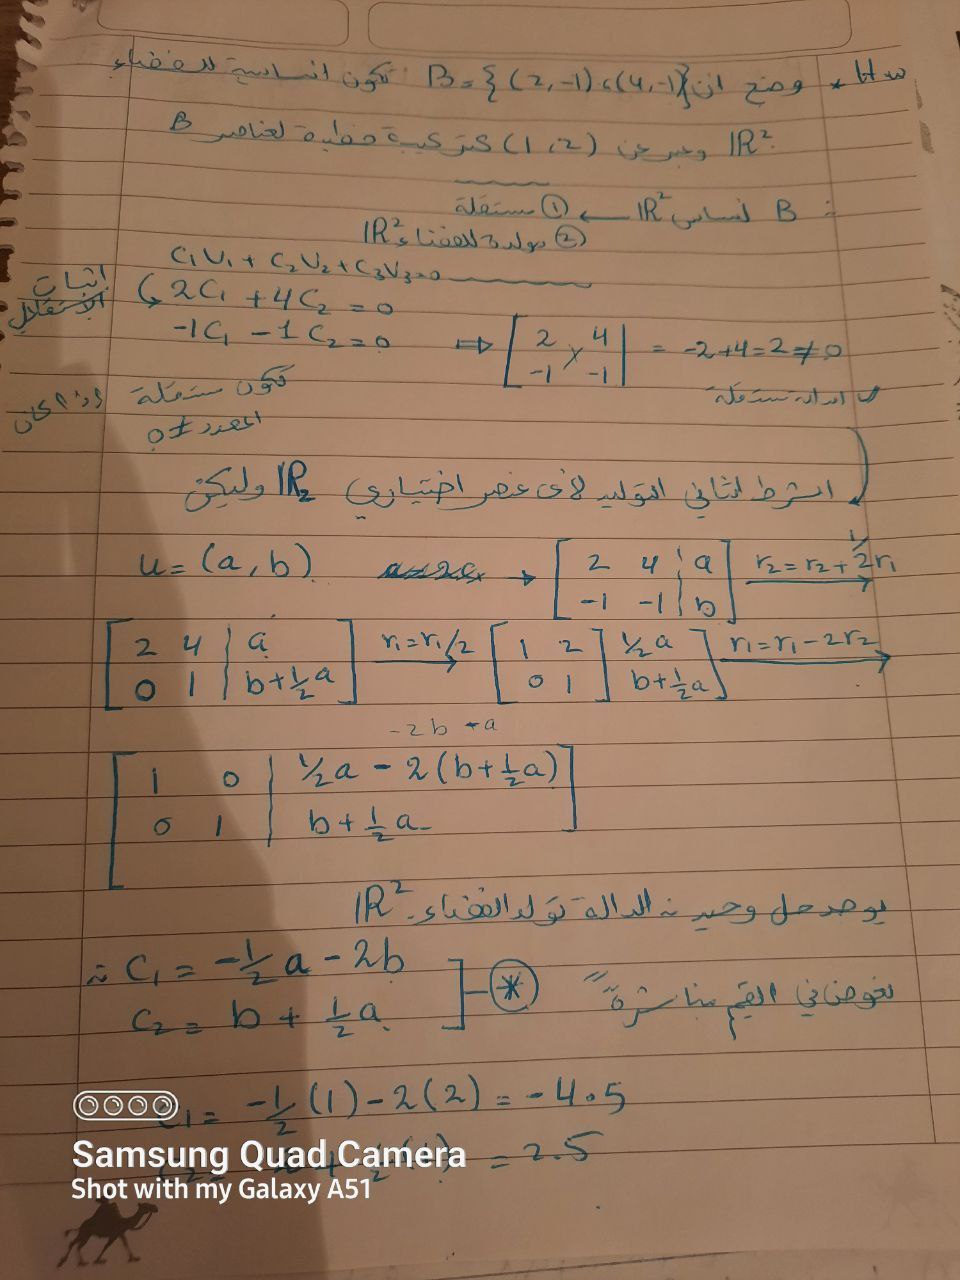 H.w * وضح ان B = {(2,-1),(4,-1)} تكون اساسية للفضاء
IR² وعبر عن (1,2) كتركيبة خطية لعناصر B
B اساس IR² ← ① مستقلة
② مولدة للفضاء IR²
C₁V₁ + C₂V₂ + C₃V₃ = 0
اثبات الاستقلال
2C₁ + 4C₂ = 0
-1C₁ - 1C₂ = 0 ⇒ [2 4 / -1 -1] = -2+4 = 2 ≠ 0
تكون مستقلة
المحدد ≠ 0
الشرط الثاني التوليد لأي عنصر اختياري IR₂ وليكن
u = (a, b) → [2 4 | a / -1 -1 | b] r₂ = r₂ + 1/2 r₁
[2 4 | a / 0 1 | b + 1/2 a] r₁ = r₁/2 [1 2 | 1/2 a / 0 1 | b + 1/2 a] r₁ = r₁ - 2r₂
-2b - a
[1 0 | 1/2 a - 2(b + 1/2 a) / 0 1 | b + 1/2 a]
يوجد حل وحيد ∴ الدالة تولد الفضاء IR²
∴ C₁ = -1/2 a - 2b
C₂ = b + 1/2 a ] - ⊛ نعوض في القيم مباشرة
C₁ = -1/2 (1) - 2(2) = -4.5
= 2.5
Samsung Quad Camera
Shot with my Galaxy A51